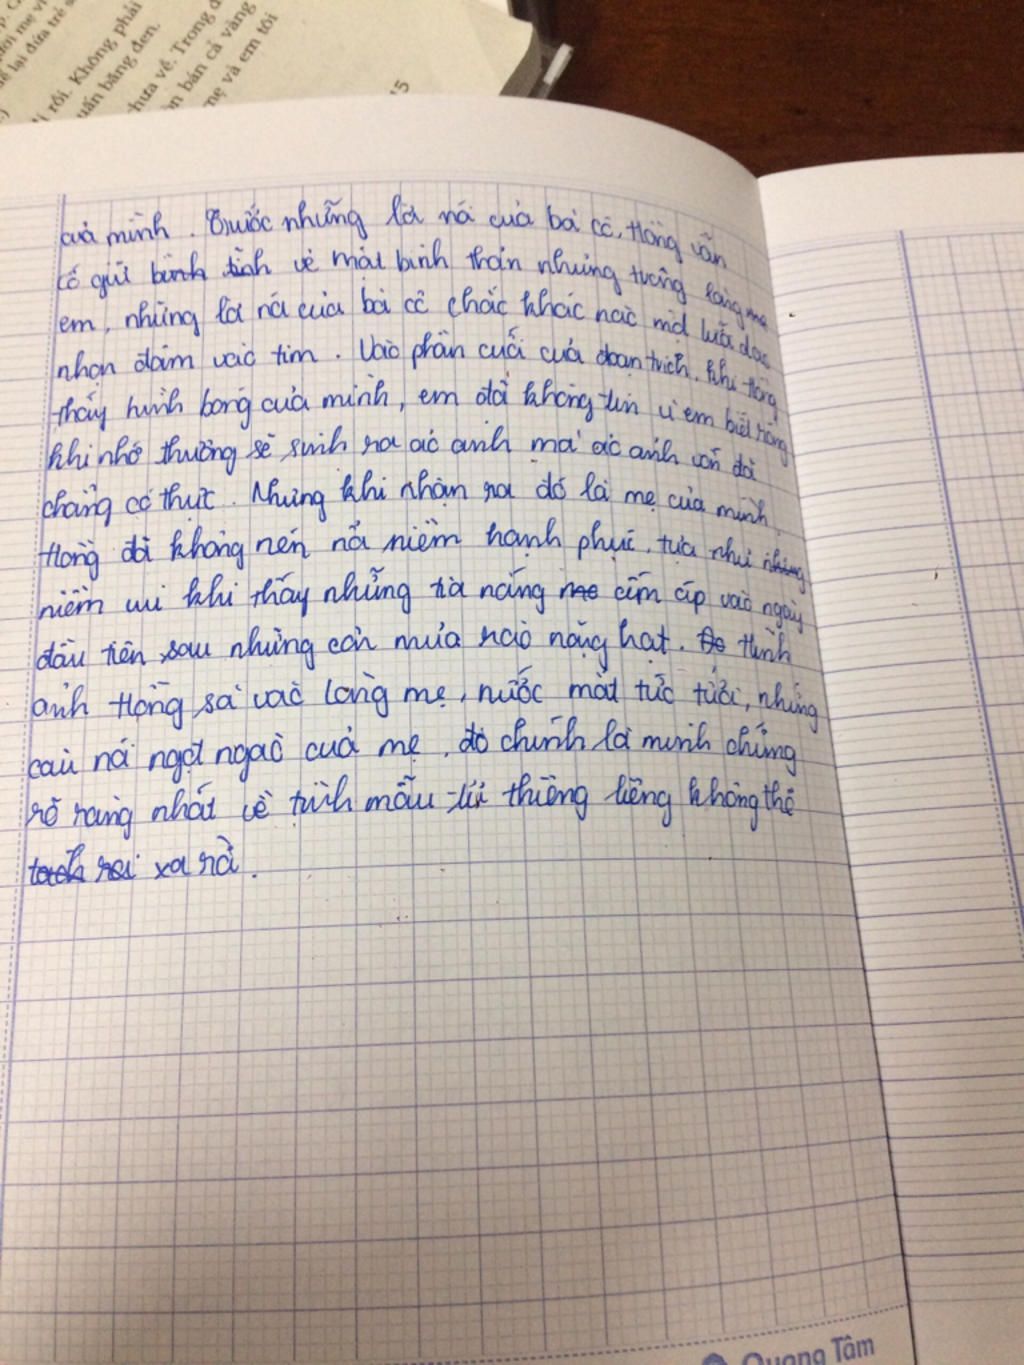 ổi mẹ v
ể lại đứa trẻ s
rồi. Không phải
uấn băng đen.
chưa về. Trong đ
n bán cả vàng
mẹ và em tôi
15
của mình. Trước những lời nói của bà cô, Hồng vẫn
cố giữ bình tĩnh vẻ mặt bình thản nhưng trong lòng
em, những lời nói của bà cô chắc khác nào mọt lưỡi dao
nhọn đâm vào tim. Vào phần cuối của đoạn trích, khi Hồng
thấy hình bóng của mình, em đã không tin vì em biết rằng
khi nhớ thường sẽ sinh ra ảo ảnh mà ảo ảnh vốn đã
chẳng có thực. Nhưng khi nhận ra đó là mẹ của mình
Hồng đã không nén nổi niềm hạnh phúc, tựa như
niềm vui khi thấy những tia nắng ấm áp vào ngày
đầu tiên sau những cơn mưa rào nặng hạt. Hình
ảnh Hồng sà vào lòng mẹ, nước mắt tức tưởi, những
câu nói ngọt ngào của mẹ, đó chính là minh chứng
rõ ràng nhất về tình mẫu tử thiêng liêng không thể
xa rời.
Quang Tâm